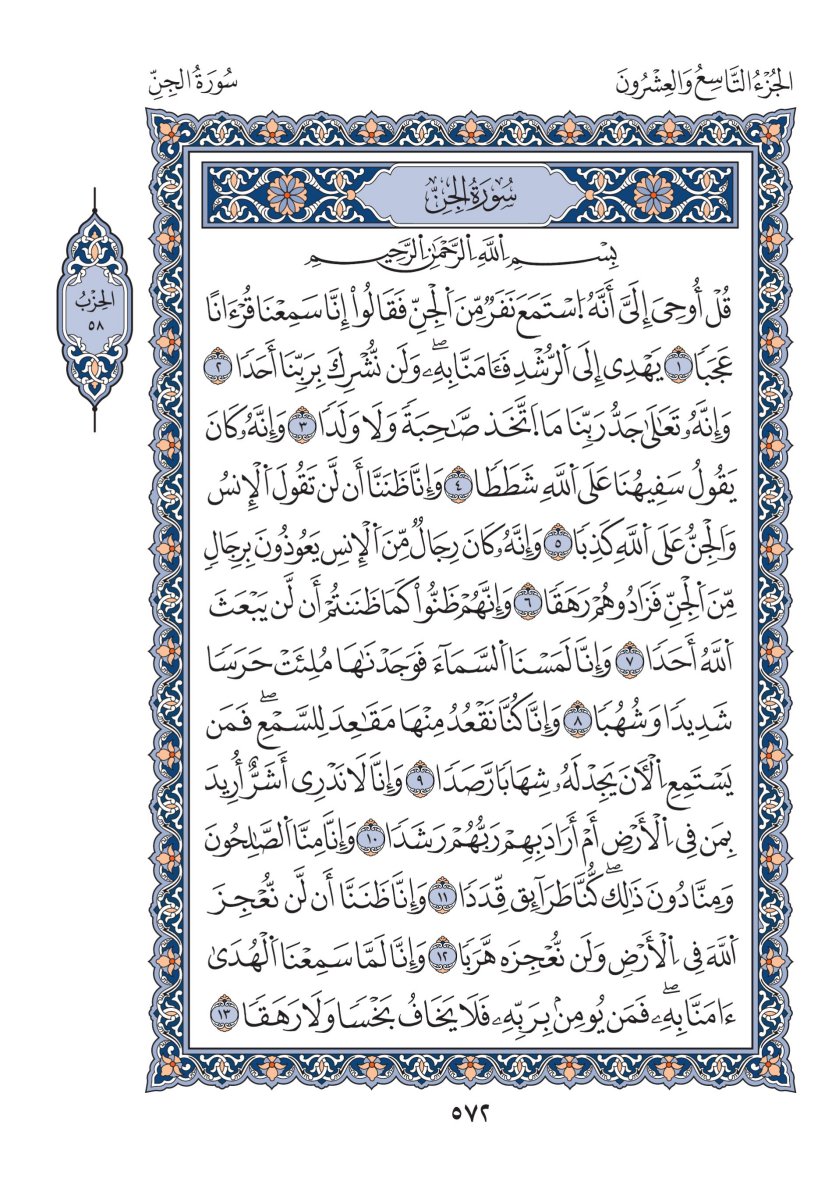 الجُزْءُ التَّاسِعُ وَالعِشْرُونَ
سُورَةُ الجِنِّ
سُورَةُ الجِنِّ
الحِزْبُ
٥٨
بِسْمِ اِللَّهِ اِلرَّحْمَٰنِ اِلرَّحِيمِ
قُلْ أُوحِيَ إِلَيَّ أَنَّهُ اُ۪سْتَمَعَ نَفَرٌ مِّنَ اَلْجِنِّ فَقَالُواْ إِنَّا سَمِعْنَا قُرْءَانًا
عَجَبٗا ١ يَهْدِي إِلَى اَلرُّشْدِ فَـَٔامَنَّا بِهِۦۖ وَلَن نُّشْرِكَ بِرَبِّنَا أَحَدٗا ٢
وَإِنَّهُۥ تَعَٰلَىٰ جَدُّ رَبِّنَا مَا اَ۪تَّخَذ صَّٰحِبَةٗ وَلَا وَلَدٗا ٣ وَإِنَّهُۥ كَانَ
يَقُولُ سَفِيهُنَا عَلَى اَللَّهِ شَطَطٗا ٤ وَإِنَّا ظَنَنَّا أَن لَّن تَقُولَ اَلْإِنسُ
وَالْجِنُّ عَلَى اَللَّهِ كَذِبٗا ٥ وَإِنَّهُۥ كَانَ رِجَالٌ مِّنَ اَلْإِنسِ يَعُوذُونَ بِرِجَالٖ
مِّنَ اَلْجِنِّ فَزَادُوهُمْ رَهَقٗا ٦ وَإِنَّهُمْ ظَنُّواْ كَمَا ظَنَنتُمْ أَن لَّن يَبْعَثَ
اَللَّهُ أَحَدٗا ٧ وَإِنَّا لَمَسْنَا اَلسَّمَآءَ فَوَجَدْنَٰهَا مُلِئَتْ حَرَسٗا
شَدِيدٗا وَشُهُبٗا ٨ وَإِنَّا كُنَّا نَقْعُدُ مِنْهَا مَقَٰعِدَ لِلسَّمْعِۖ فَمَن
يَسْتَمِعِ اِلْأٓنَ يَجِدْ لَهُۥ شِهَابٗا رَّصَدٗا ٩ وَإِنَّا لَا نَدْرِي أَشَرٌّ أُرِيدَ
بِمَن فِي اِلْأَرْضِ أَمْ أَرَادَ بِهِمْ رَبُّهُمْ رَشَدٗا ١٠ وَإِنَّا مِنَّا اَلصَّٰلِحُونَ
وَمِنَّا دُونَ ذَٰلِكۖ كُّنَّا طَرَآئِق قِّدَدٗا ١١ وَإِنَّا ظَنَنَّا أَن لَّن نُّعْجِزَ
اَللَّهَ فِي اِلْأَرْضِ وَلَن نُّعْجِزَه هَّرَبٗا ١٢ وَإِنَّا لَمَّا سَمِعْنَا اَلْهُدَىٰ
ءَامَنَّا بِهِۦۖ فَمَن يُومِنۢ بِرَبِّهِۦ فَلَا يَخَافُ بَخْسٗا وَلَا رَهَقٗا ١٣
٥٧٢